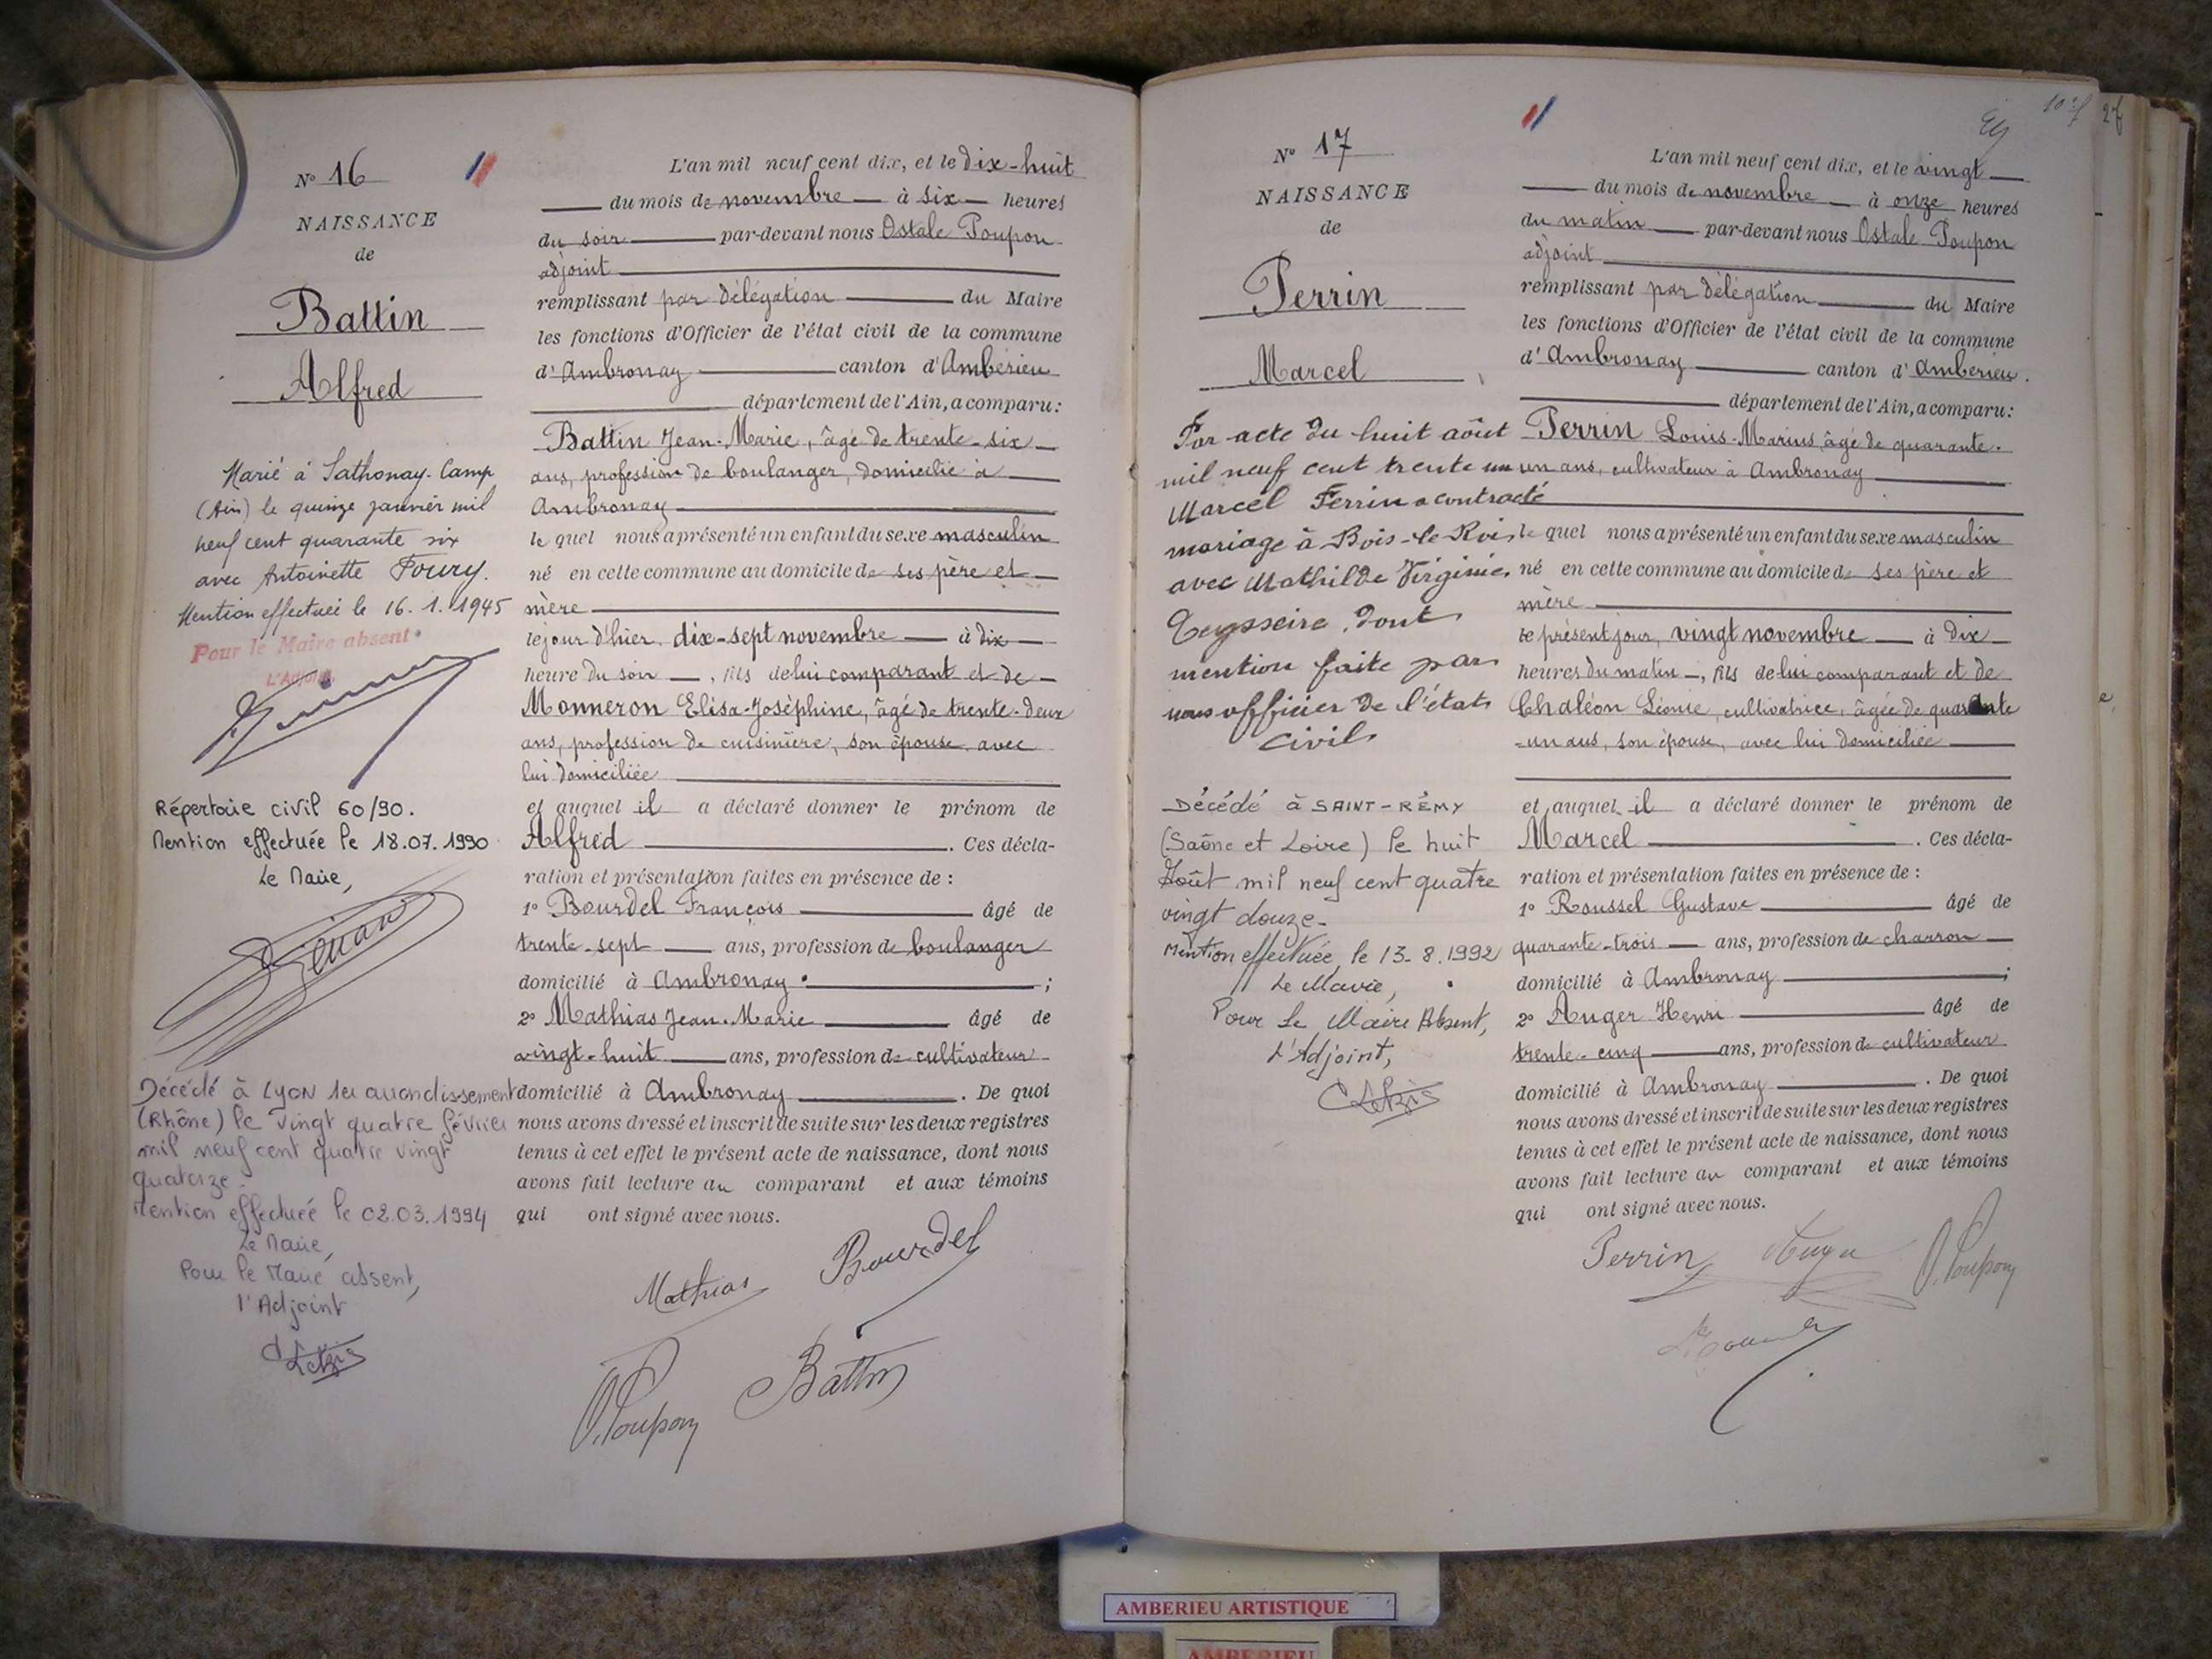 N° 16
NAISSANCE
de
Battin
Alfred
Marié à Sathonay-Camp
(Ain) le quinze janvier mil
neuf cent quarante six
avec Antoinette Foury.
Mention effectuée le 16.1.1945
Pour le Maire absent
L'Adjoint,
Répertoire civil 60/90.
Mention effectuée le 18.07.1990
Le Maire,
Décédé à LYON 1er arrondissement
(Rhône) le vingt quatre février
mil neuf cent quatre vingt
quatorze.
Mention effectuée le 02.03.1994
Le Maire,
Pour le Maire absent,
l'Adjoint
L'an mil neuf cent dix, et le dix-huit
du mois de novembre à six heures
du soir par-devant nous Ostale Poupon
adjoint
remplissant par délégation du Maire
les fonctions d'Officier de l'état civil de la commune
d'Ambronay canton d'Ambérieu
département de l'Ain, a comparu:
Battin Jean-Marie, âgé de trente-six
ans, profession de boulanger, domicilié à
Ambronay
lequel nous a présenté un enfant du sexe masculin
né en cette commune au domicile de ses père et
mère
le jour d'hier, dix-sept novembre à dix
heure du soir, fils de lui comparant et de
Monneron Elisa-Joséphine, âgé de trente-deux
ans, profession de cuisinière, son épouse avec
lui domiciliée
et auquel il a déclaré donner le prénom de
Alfred . Ces décla-
ration et présentation faites en présence de :
1° Bourdel François âgé de
trente-sept ans, profession de boulanger
domicilié à Ambronay ;
2° Mathias Jean-Marie âgé de
vingt-huit ans, profession de cultivateur
domicilié à Ambronay . De quoi
nous avons dressé et inscrit de suite sur les deux registres
tenus à cet effet le présent acte de naissance, dont nous
avons fait lecture au comparant et aux témoins
qui ont signé avec nous.
Mathias Bourdel
O. Poupon Battin
107 27
N° 17
NAISSANCE
de
Perrin
Marcel
Par acte du huit août
mil neuf cent trente un
Marcel Perrin a contracté
mariage à Bois-le-Roi
avec Mathilde Virginie
Teysseire, dont
mention faite par
nous officier de l'état
civil
Décédé à SAINT-RÉMY
(Saône et Loire) le huit
Août mil neuf cent quatre
vingt douze.
Mention effectuée le 13-8.1992
Le Maire,
Pour Le Maire Absent,
L'Adjoint,
L'an mil neuf cent dix, et le vingt
du mois de novembre à onze heures
du matin par-devant nous Ostale Poupon
adjoint
remplissant par délégation du Maire
les fonctions d'Officier de l'état civil de la commune
d'Ambronay canton d'Ambérieu.
département de l'Ain, a comparu:
Perrin Louis-Marius, âgé de quarante-
un ans, cultivateur à Ambronay
lequel nous a présenté un enfant du sexe masculin
né en cette commune au domicile de ses père et
mère
le présent jour, vingt novembre à dix
heures du matin, fils de lui comparant et de
Chaléon Léonie, cultivatrice, âgée de quarante
-un ans, son épouse, avec lui domiciliée
et auquel il a déclaré donner le prénom de
Marcel . Ces décla-
ration et présentation faites en présence de :
1° Roussel Gustave âgé de
quarante-trois ans, profession de charron
domicilié à Ambronay ;
2° Auger Henri âgé de
trente-cinq ans, profession de cultivateur
domicilié à Ambronay . De quoi
nous avons dressé et inscrit de suite sur les deux registres
tenus à cet effet le présent acte de naissance, dont nous
avons fait lecture au comparant et aux témoins
qui ont signé avec nous.
Perrin Auger O. Poupon
AMBERIEU ARTISTIQUE
AMBERIEU